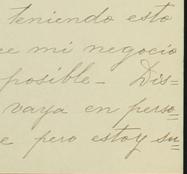 teniendo esto
ce mi negocio
posible_ Dis=
vaya en perso=
e pero estoy su=